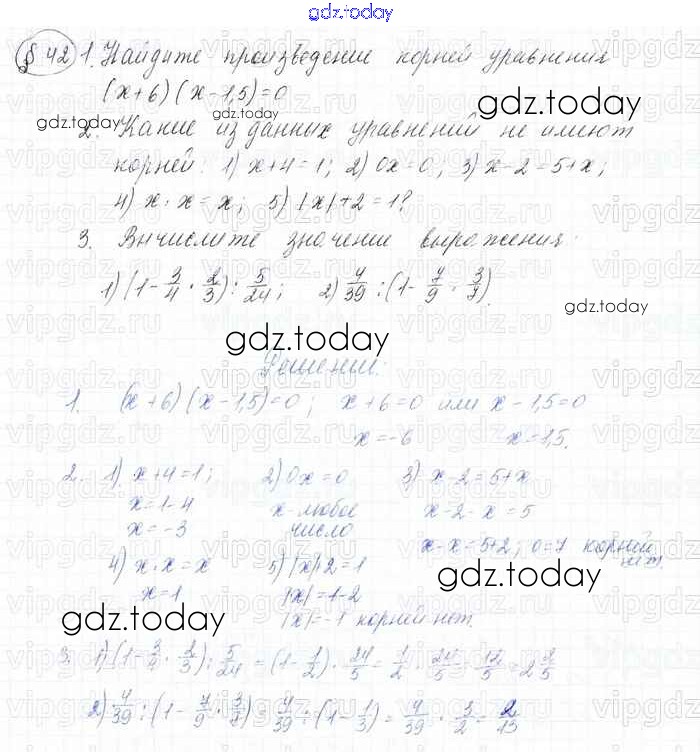 gdz.today
§ 42 1. Найдите произведение корней уравнения
(x+6)(x-1,5)=0
gdz.today gdz.today gdz.today
2. Какие из данных уравнений не имеют
корней: 1) x+4=1; 2) 0x=0; 3) x-2=5+x;
4) x·x=x; 5) |x|+2=1?
3. Вычислите значение выражения:
1) (1-3/4·2/3):5/24; 2) 4/39:(1-7/9·3/7)
gdz.today
gdz.today
Решение:
1. (x+6)(x-1,5)=0; x+6=0 или x-1,5=0
x=-6 x=1,5.
2. 1) x+4=1; 2) 0x=0 3) x-2=5+x
x=1-4 x-любое x-2-x=5
x=-3 число x-x=5+2; 0=7 корней
нет.
4) x·x=x 5) |x|+2=1
gdz.today
x=1 |x|=1-2
gdz.today |x|=-1 корней нет.
3. 1) (1-3/4·2/3):5/24=(1-1/2)·24/5=1/2·24/5=12/5=2 2/5
2) 4/39:(1-7/9·3/7)=4/39:(1-1/3)=4/39·3/2=2/13